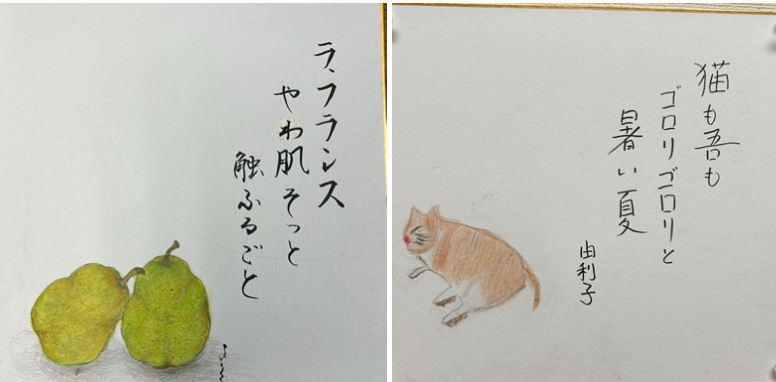 ラ、フランス
やわ肌そっと
触ふるごと
猫も吾も
ゴロリゴロリと
暑い夏
由利子